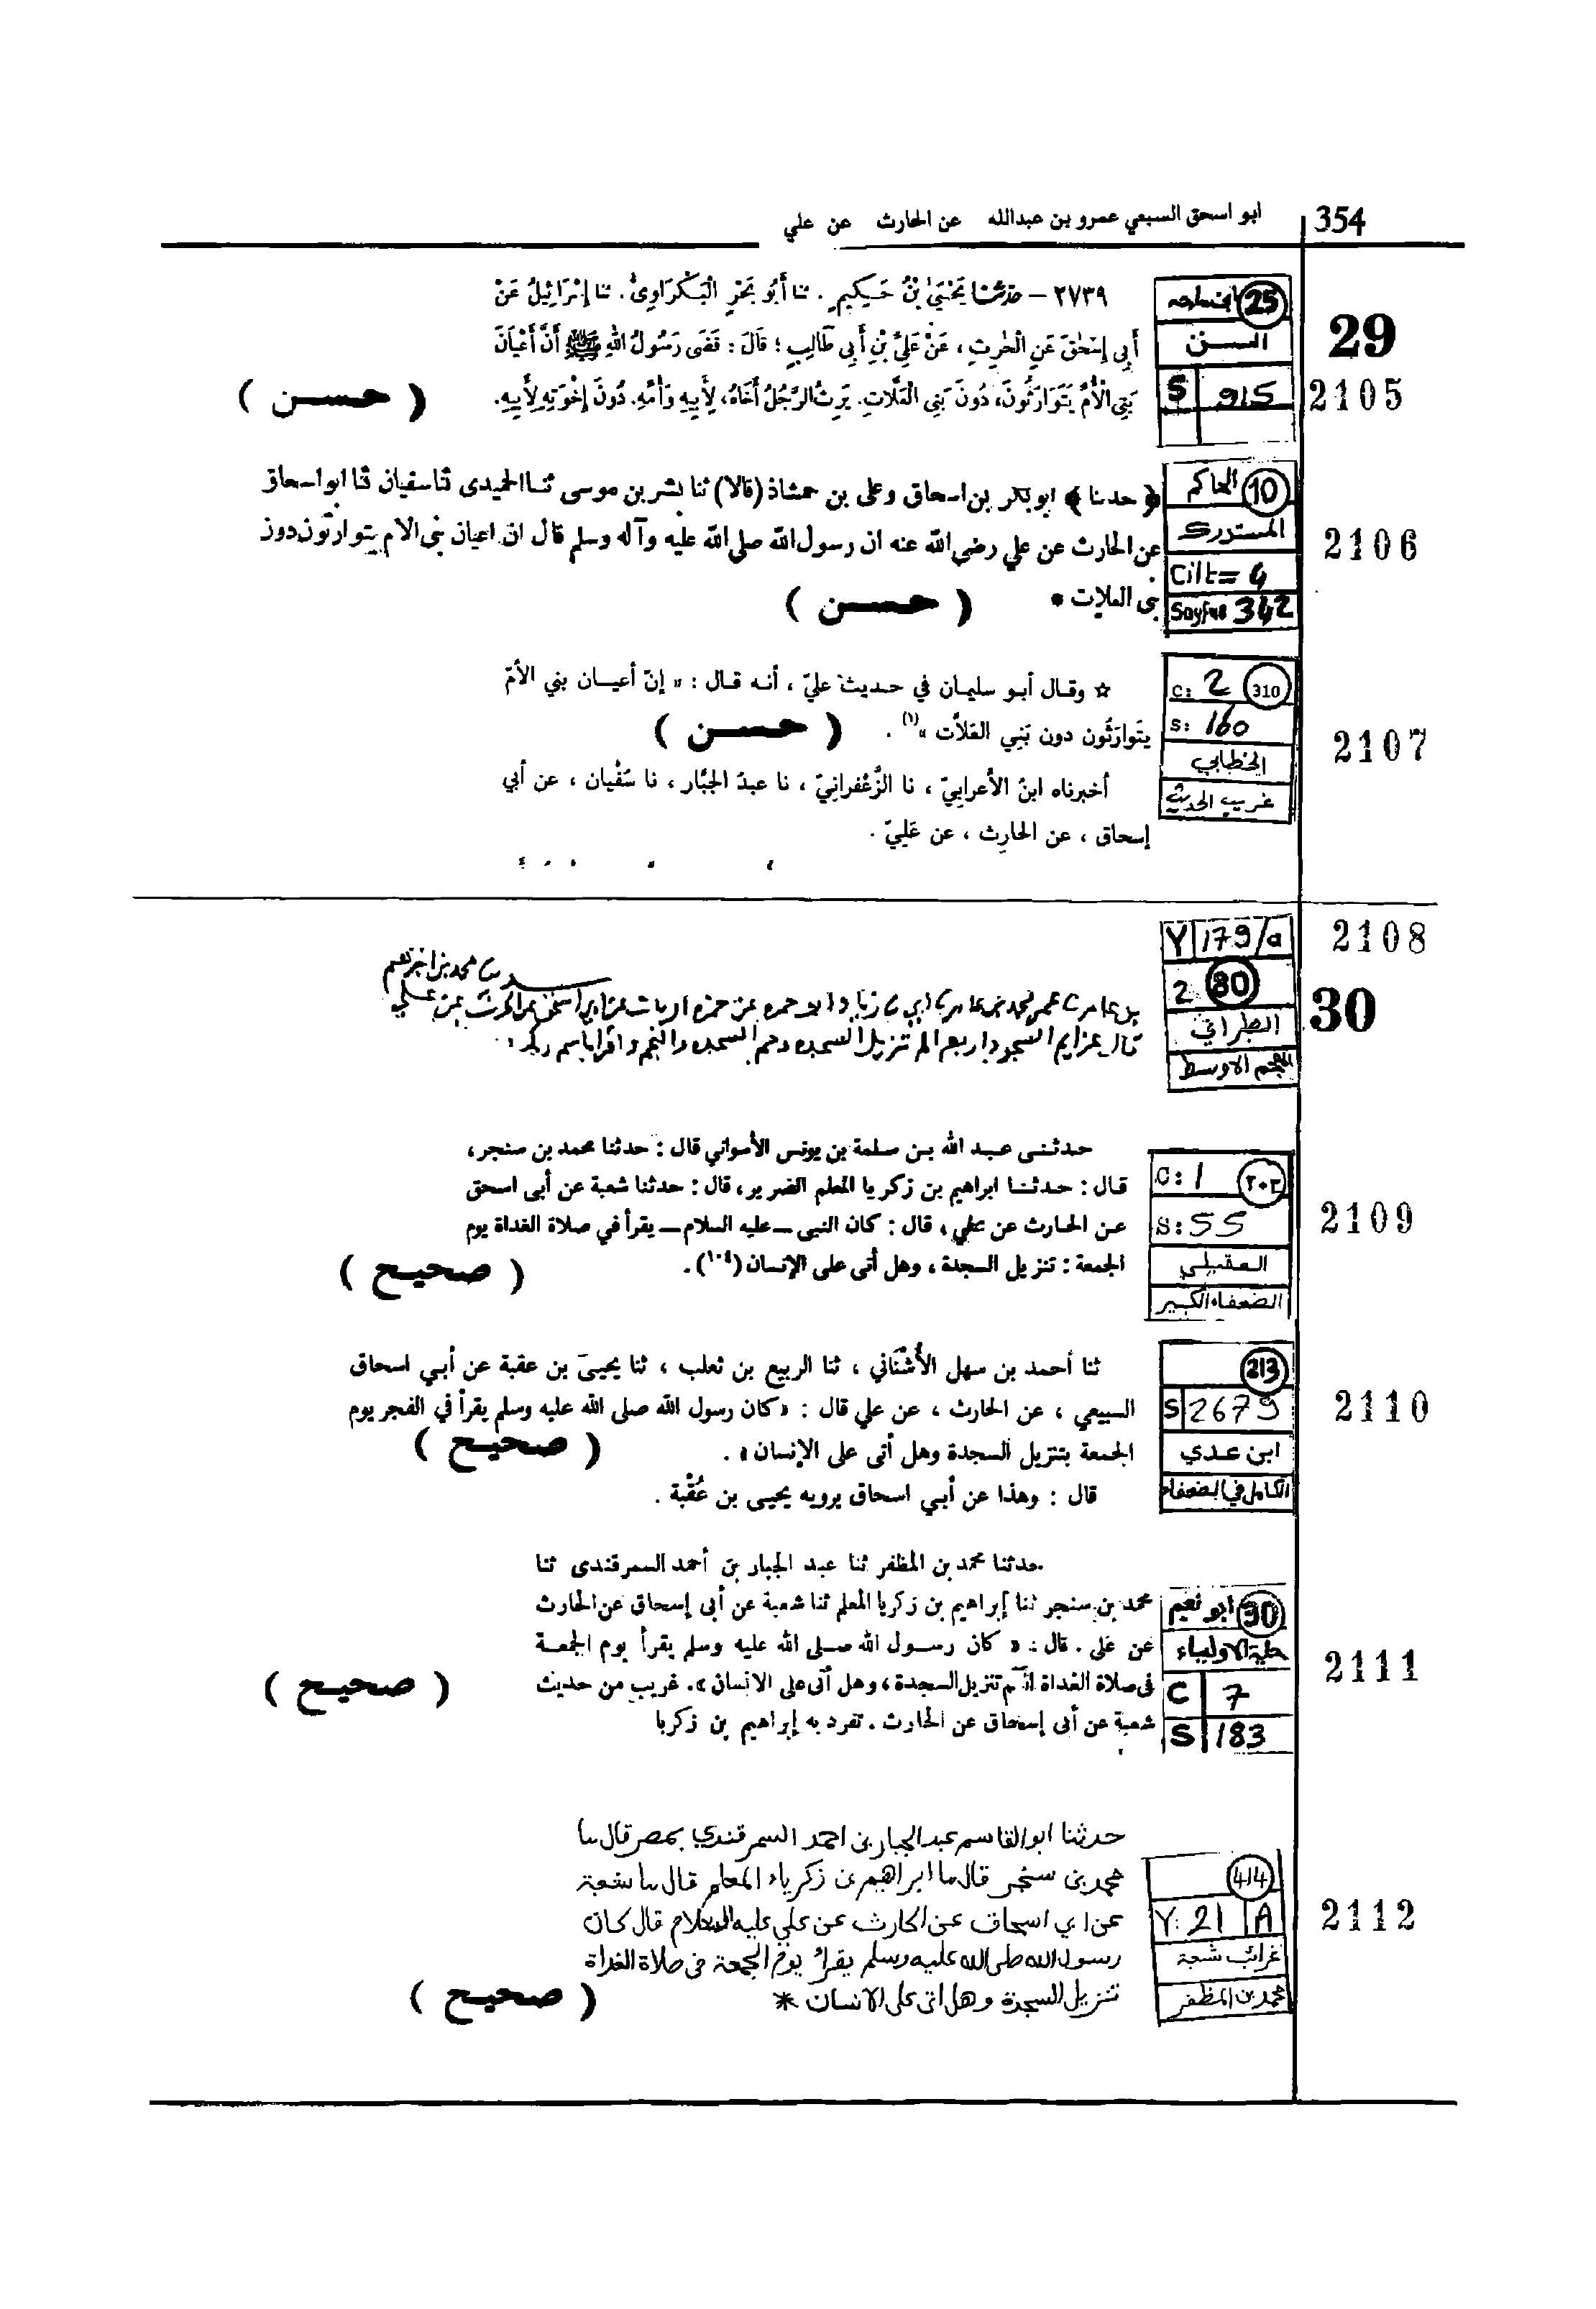 354 ابو اسحق السبعي عمرو بن عبدالله عن الحارث عن علي
29
2105
25 ابن ماجه
السنن
S 915
٢٧٣٩ – حدثنا يَحْيَىٰ بْنُ حَكِيمٍ. ثنا أَبُو بَحْرٍ الْبَكْرَاوِيُّ. ثنا إِسْرَائِيلُ عَنْ
أَبِي إِسْحَٰقَ عَنِ الْحَٰرِثِ، عَنْ عَلِيِّ بْنِ أَبِي طَالِبٍ؛ قَالَ: قَضَى رَسُولُ اللهِ ﷺ أَنَّ أَعْيَانَ
بَنِي الْأُمِّ يَتَوَارَثُونَ، دُونَ بَنِي الْعَلَّاتِ. يَرِثُ الرَّجُلُ أَخَاهُ، لِأَبِيهِ وَأُمِّهِ. دُونَ إِخْوَتِهِ لِأَبِيهِ.
( حسن )
2106
10 الحاكم
المستدرك
Cilt= 4
Sayfa 342
﴿ حدثنا ﴾ ابوبكر بن اسحاق وعلى بن حمشاذ (قالا) ثنا بشر بن موسى ثنا الحميدى ثنا سفيان ثنا ابواسحاق
عن الحارث عن علي رضى الله عنه ان رسول الله صلى الله عليه وآله وسلم قال ان اعيان بنى الام يتوارثون دون
بنى العلات *
( حسن )
2107
C: 2 310
S: 160
الخطابي
غريب الحديث
☆ وقال أبو سليمان في حديث عليّ ، أنه قال : « إنّ أعيان بني الأمّ
يتَوارَثُون دون بَنِي العَلاَّت »(١) .
( حسن )
أخبرناه ابنُ الأعرابيّ ، نا الزَّعْفرانيّ ، نا عبدُ الجبّار ، نا سُفْيان ، عن أبي
إسحاق ، عن الحارِث ، عن عَليّ .
2108
30
Y 179/a
2 80
الطبراني
المعجم الاوسط
قال عزايم السجود اربع الم تنزيل السجده وحم السجده والنجم واقرا باسم ربك
2109
C: 1 ٢٠٣
S: 55
العقيلي
الضعفاء الكبير
حدثنى عبد الله بن سلمة بن يونس الأسواني قال : حدثنا محمد بن سنجر،
قال : حدثنا ابراهيم بن زكريا المعلم الضرير، قال : حدثنا شعبة عن أبى اسحق
عن الحارث عن علي، قال : كان النبى – عليه السلام – يقرأ في صلاة الغداة يوم
الجمعة : تنزيل السجدة، وهل أتى على الإنسان (١٠٤).
( صحيح )
2110
213
S 2679
ابن عدي
الكامل في الضعفاء
ثنا أحمد بن سهل الأُشْنَاني ، ثنا الربيع بن ثعلب ، ثنا يحيىَ بن عقبة عن أبي اسحاق
السبيعي ، عن الحارث ، عن علي قال : «كان رسول الله صلى الله عليه وسلم يقرأ في الفجر يوم
الجمعة بتنزيل السجدة وهل أتى على الإنسان» .
( صحيح )
قال : وهذا عن أبي اسحاق يرويه يحيى بن عُقْبة .
2111
90 ابو نعيم
حلية الاولياء
C 7
S 183
حدثنا محمد بن المظفر ثنا عبد الجبار بن أحمد السمرقندى ثنا
محمد بن سنجر ثنا إبراهيم بن زكريا المعلم ثنا شعبة عن أبى إسحاق عن الحارث
عن على . قال : « كان رسول الله صلى الله عليه وسلم يقرأ يوم الجمعة
فى صلاة الغداة آلم تنزيل السجدة، وهل أتى على الانسان ». غريب من حديث
شعبة عن أبى إسحاق عن الحارث . تفرد به إبراهيم بن زكريا
( صحيح )
2112
414
Y: 21 A
غرائب شعبة
محمد بن المظفر
حدثنا ابوالقاسم عبد الجبار بن احمد السمرقندي بمصر قال ثنا
محمد بن سنجر قال ثنا ابراهيم بن زكرياء المعلم قال ثنا شعبة
عن ابي اسحاق عن الحارث عن علي عليه السلام قال كان
رسول الله صلى الله عليه وسلم يقرأ يوم الجمعة في صلاة الغداة
تنزيل السجدة وهل اتى على الانسان *
( صحيح )